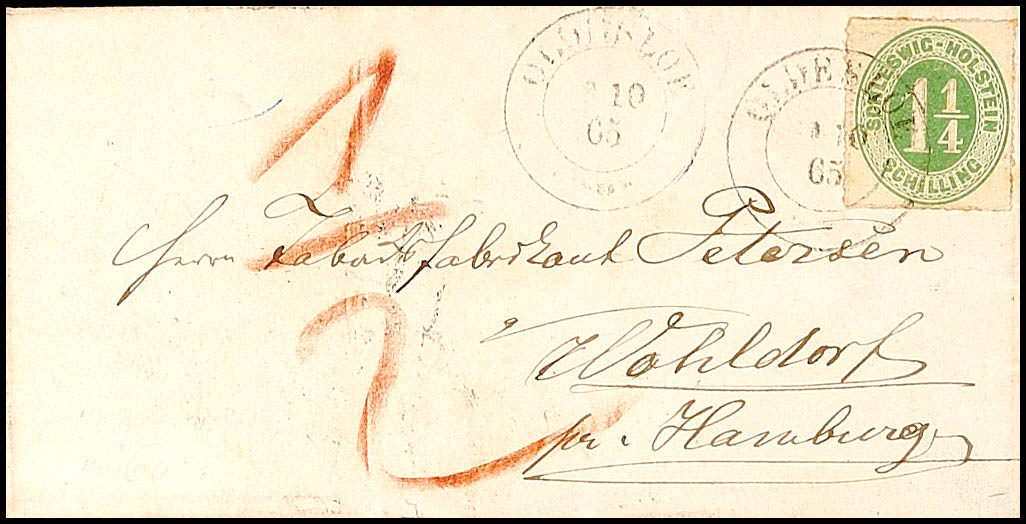 OLDESLOE
10
65
OLDESLOE
10
65
SCHLESWIG-HOLSTEIN
1 1/4
SCHILLING
1/2
Herrn Tabacksfabrikant Petersen
Wohldorf
pr. Hamburg